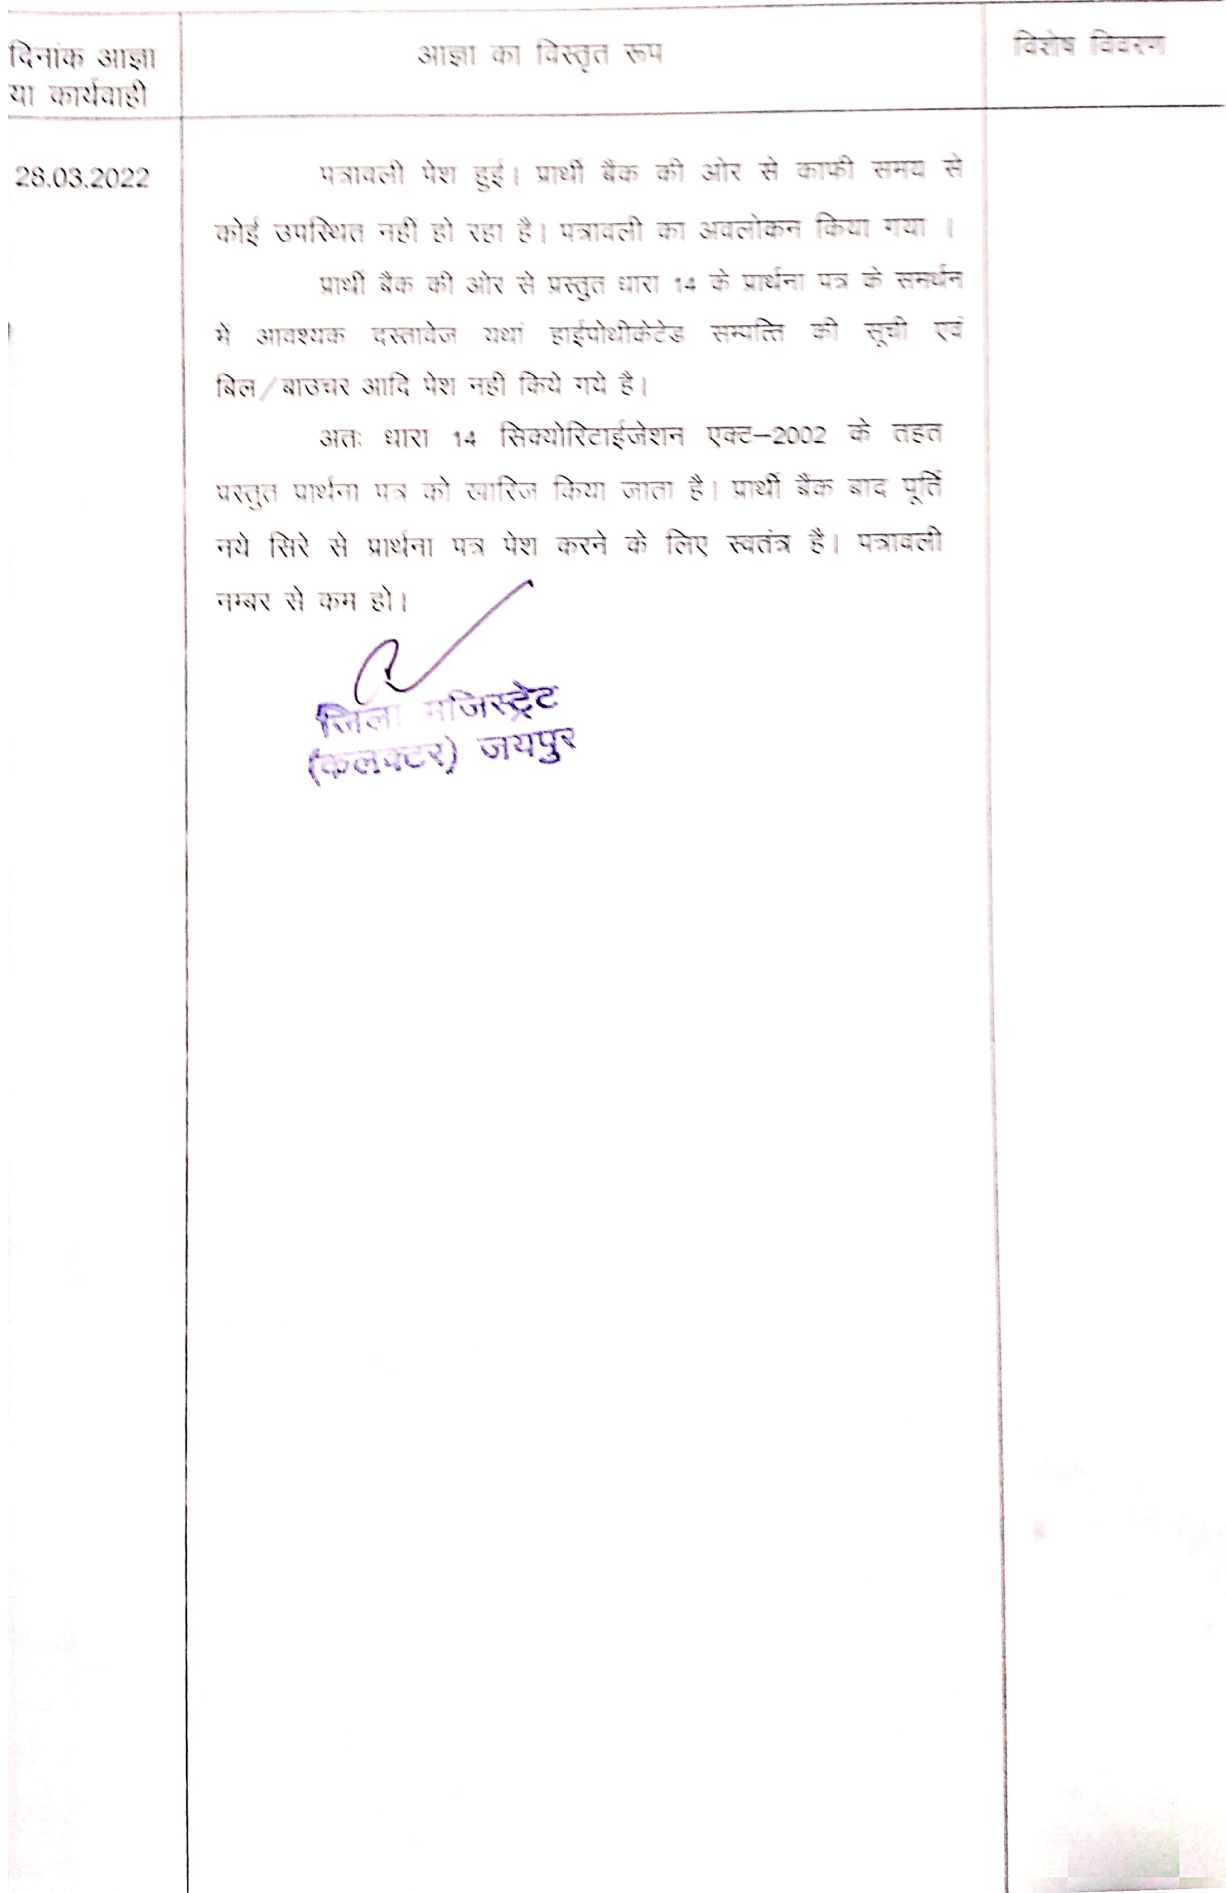 दिनांक आज्ञा
या कार्यवाही
आज्ञा का विस्तृत रूप
विशेष विवरण
28.03.2022
पत्रावली पेश हुई। प्रार्थी बैंक की ओर से काफी समय से
कोई उपस्थित नहीं हो रहा है। पत्रावली का अवलोकन किया गया ।
प्रार्थी बैंक की ओर से प्रस्तुत धारा 14 के प्रार्थना पत्र के समर्थन
में आवश्यक दस्तावेज यथां हाईपोथीकेटेड सम्पत्ति की सूची एवं
बिल/बाउचर आदि पेश नहीं किये गये है।
अतः धारा 14 सिक्योरिटाईजेशन एक्ट–2002 के तहत
परस्तुत प्रार्थना पत्र को खारिज किया जाता है। प्रार्थी बैंक बाद पूर्ति
नये सिरे से प्रार्थना पत्र पेश करने के लिए स्वतंत्र है। पत्रावली
नम्बर से कम हो।
जिला मजिस्ट्रेट
(कलक्टर) जयपुर